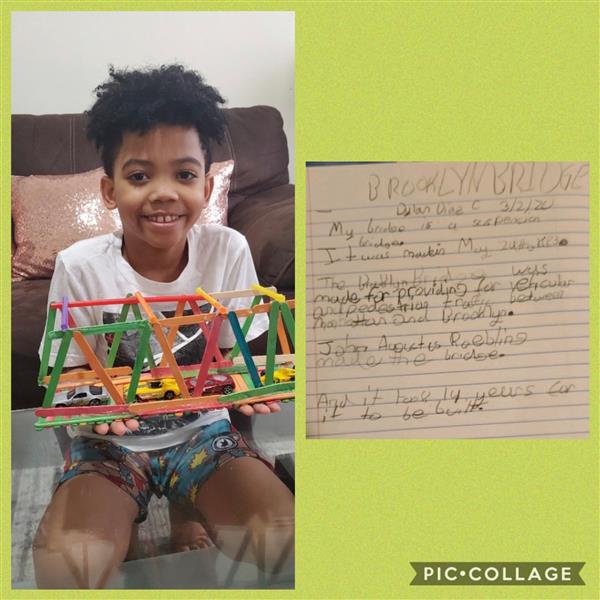 BROOKLYN BRIDGE
Dylan Diaz C 3/2/20
My bridge is a suspension
bridge.
It was made in May 24th, 1883.
The Brooklyn Bridge was
made for providing for vehicular
and pedestrian trafic between
manhattan and Brooklyn.
John Augustus Roebling
made the bridge.
And it took 14 years for
it to be built.
PIC•COLLAGE